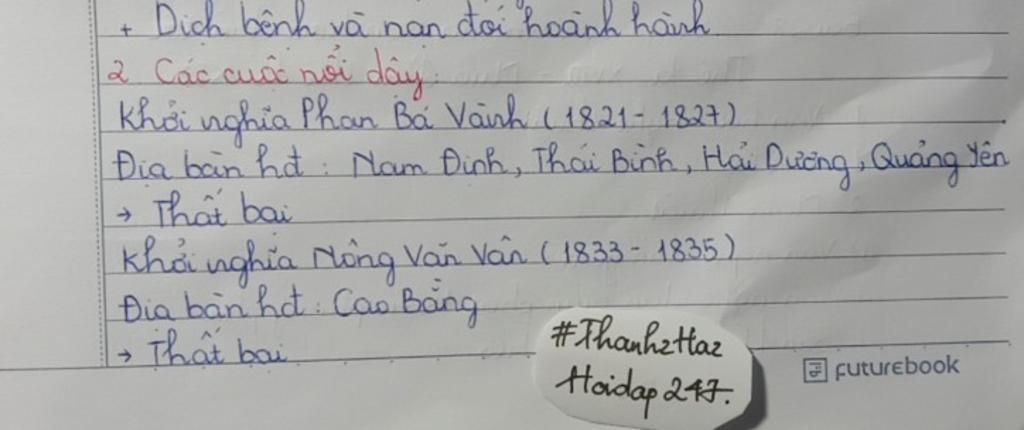 + Dịch bệnh và nạn đói hoành hành
2 Các cuộc nổi dậy:
Khởi nghĩa Phan Bá Vành (1821 - 1827)
Địa bàn hđ : Nam Định, Thái Bình, Hải Dương, Quảng Yên
→ Thất bại
Khởi nghĩa Nông Văn Vân (1833 - 1835)
Địa bàn hđ : Cao Bằng
→ Thất bại
#Thanh2Ha2
Hoidap247.
futurebook